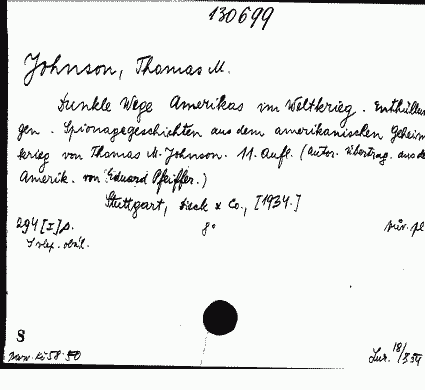 130699
Johnson, Thomas M.
Dunkle Wege Amerikas im Weltkrieg. Enthüllun
gen. Spionagegeschichten aus dem amerikanischen Geheim
krieg von Thomas M. Johnson. 11. Aufl. (autor. Übertrag. aus de
Amerik. von Eduard Pfeiffer.)
Stuttgart, Dieck & Co., [1934.]
294 [I] p. 8°
S